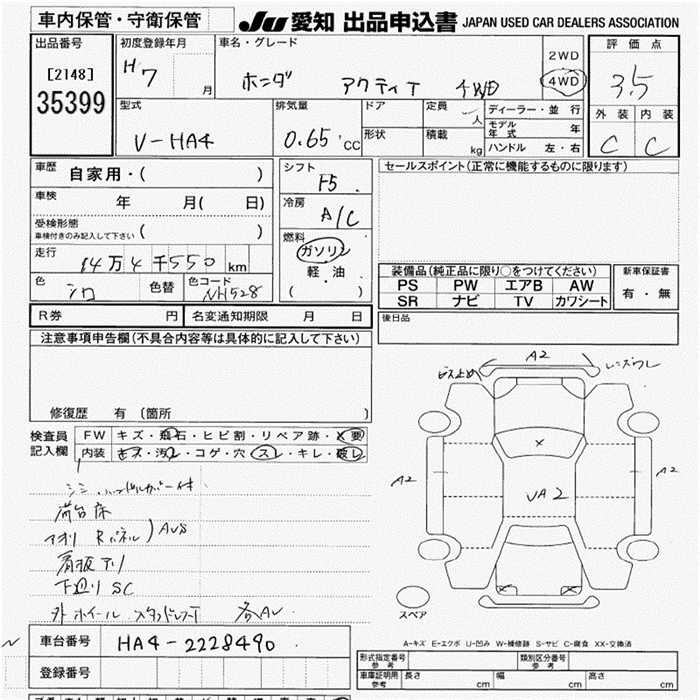 車内保管・守衛保管
JU 愛知 出品申込書 JAPAN USED CAR DEALERS ASSOCIATION
出品番号
[2148]
35399
初度登録年月
H 7 月
車名・グレード
ホンダ アクティT 4WD
2WD
4WD
評価点
3.5
外装 内装
C C
型式
V-HA4
排気量
0.65 CC
ドア
形状
定員 人
積載 kg
ディーラー・並行
モデル年式 年
ハンドル 左・右
車歴 自家用・( )
車検 年 月( 日)
受検形態
車検付きのみ記入して下さい ( )
走行
14万4千550 km
色 シロ
色替
色コード NH528
シフト
F5
冷房
A/C
燃料
ガソリン
軽・油
( )
セールスポイント(正常に機能するものに限ります)
装備品(純正品に限り○をつけてください)
PS PW エアB AW
SR ナビ TV カワシート
新車保証書
有・無
後日品
R券 円 名変通知期限 月 日
注意事項申告欄(不具合内容等は具体的に記入して下さい)
修復歴 有 (箇所 )
検査員
記入欄
FW キズ・飛石・ヒビ割・リペア跡・X要
内装 キズ・汚レ・コゲ・穴・スレ・キレ・破レ
荷台床
アオリ Rパネル) AVS
看板アリ
下廻り SC
外ホイール スタッドレスT 各AV
A2
ビス止め
レンズワレ
A2
A2
X
VA2
スペア
車台番号 HA4-2228490
登録番号
A-キズ E-エクボ U-凹み W-補修跡 S-サビ C-腐食 XX-交換済
形式指定番号
参考
類別区分番号
参考
車庫証明用
参考
長さ cm 幅 cm 高さ cm